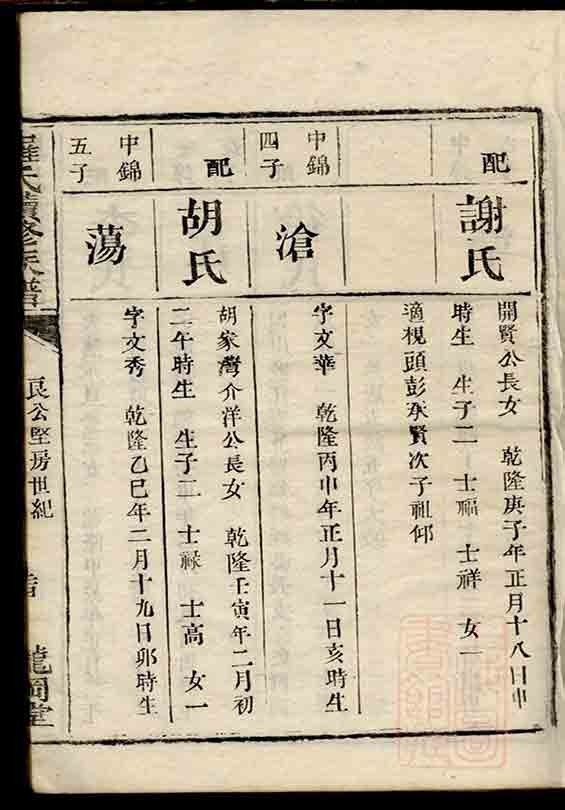 配
謝氏
開賢公長女 乾隆庚子年正月十八日申
時生 生子二 士福 士祥 女一
適梘頭彭承賢次子祖仰
中錦
四子
滄
字文華 乾隆丙申年正月十一日亥時生
配
胡氏
胡家灣介洋公長女 乾隆壬寅年二月初
二午時生 生子二 士祿 士高 女一
中錦
五子
蕩
字文秀 乾隆乙巳年二月十九日卯時生
羅氏續修族譜
良公堅房世紀
龍岡堂